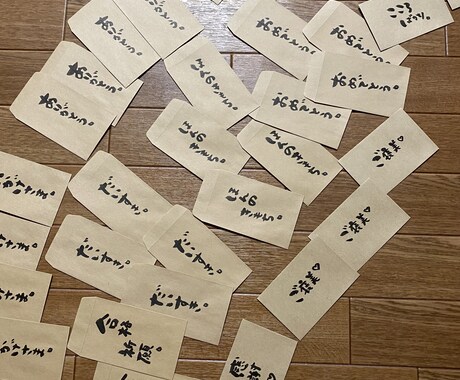 ありがとう。
ありがとう。
ありがとう。
ありがとう。
おめでとう。
おめでとう。
おめでとう。
おめでとう。
ほんの
きもち。
ほんの
きもち。
ほんの
きもち。
ほんの
きもち。
ご褒美♡
ご褒美♡
ご褒美♡
だいすき。
だいすき。
だいすき。
だいすき。
かげさま。
げさま。
げさま。
かげさま。
合格
祈願。